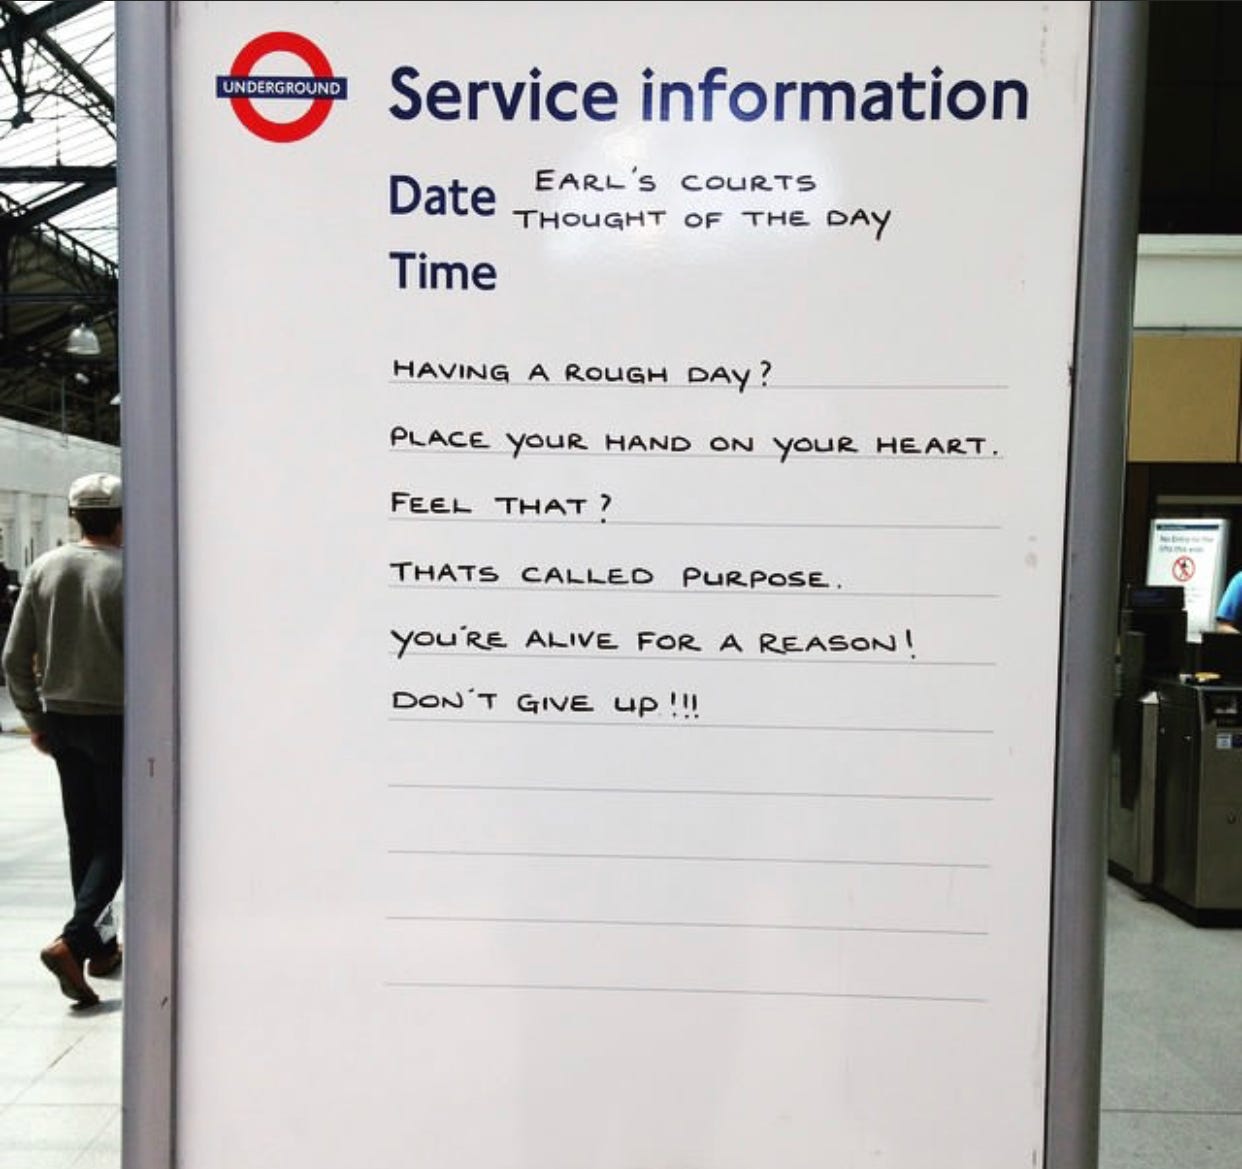 UNDERGROUND
Service information
Date EARL'S COURTS
THOUGHT OF THE DAY
Time
HAVING A ROUGH DAY?
PLACE YOUR HAND ON YOUR HEART.
FEEL THAT?
THATS CALLED PURPOSE.
YOU'RE ALIVE FOR A REASON!
DON'T GIVE UP!!!
No Entry to the
lifts this side